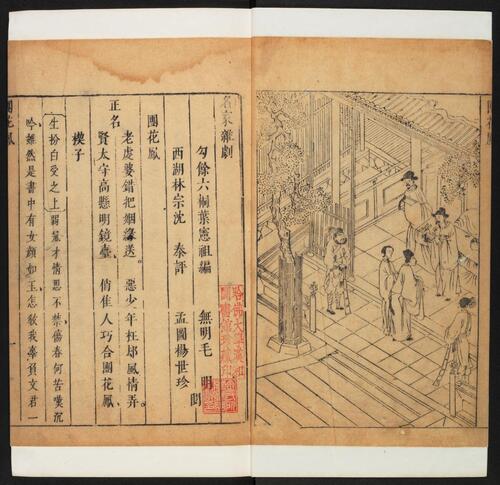 名家雜劇
勾餘六桐葉憲祖編　無明毛
西湖林宗沈　泰評　孟圖楊世珍　閱
團花鳳
老虔婆錯把姻緣送。惡少年枉邸風情弄。
正名
賢太守高懸明鏡臺。俏佳人巧合團花鳳。
楔子
生扮白受之上羈旅才情思不禁傷春何苦嘆沉
吟雖然是書中有女顏如玉怎教我辜負文君一
團花鳳
一
哈佛大學漢和
圖書館珍藏印